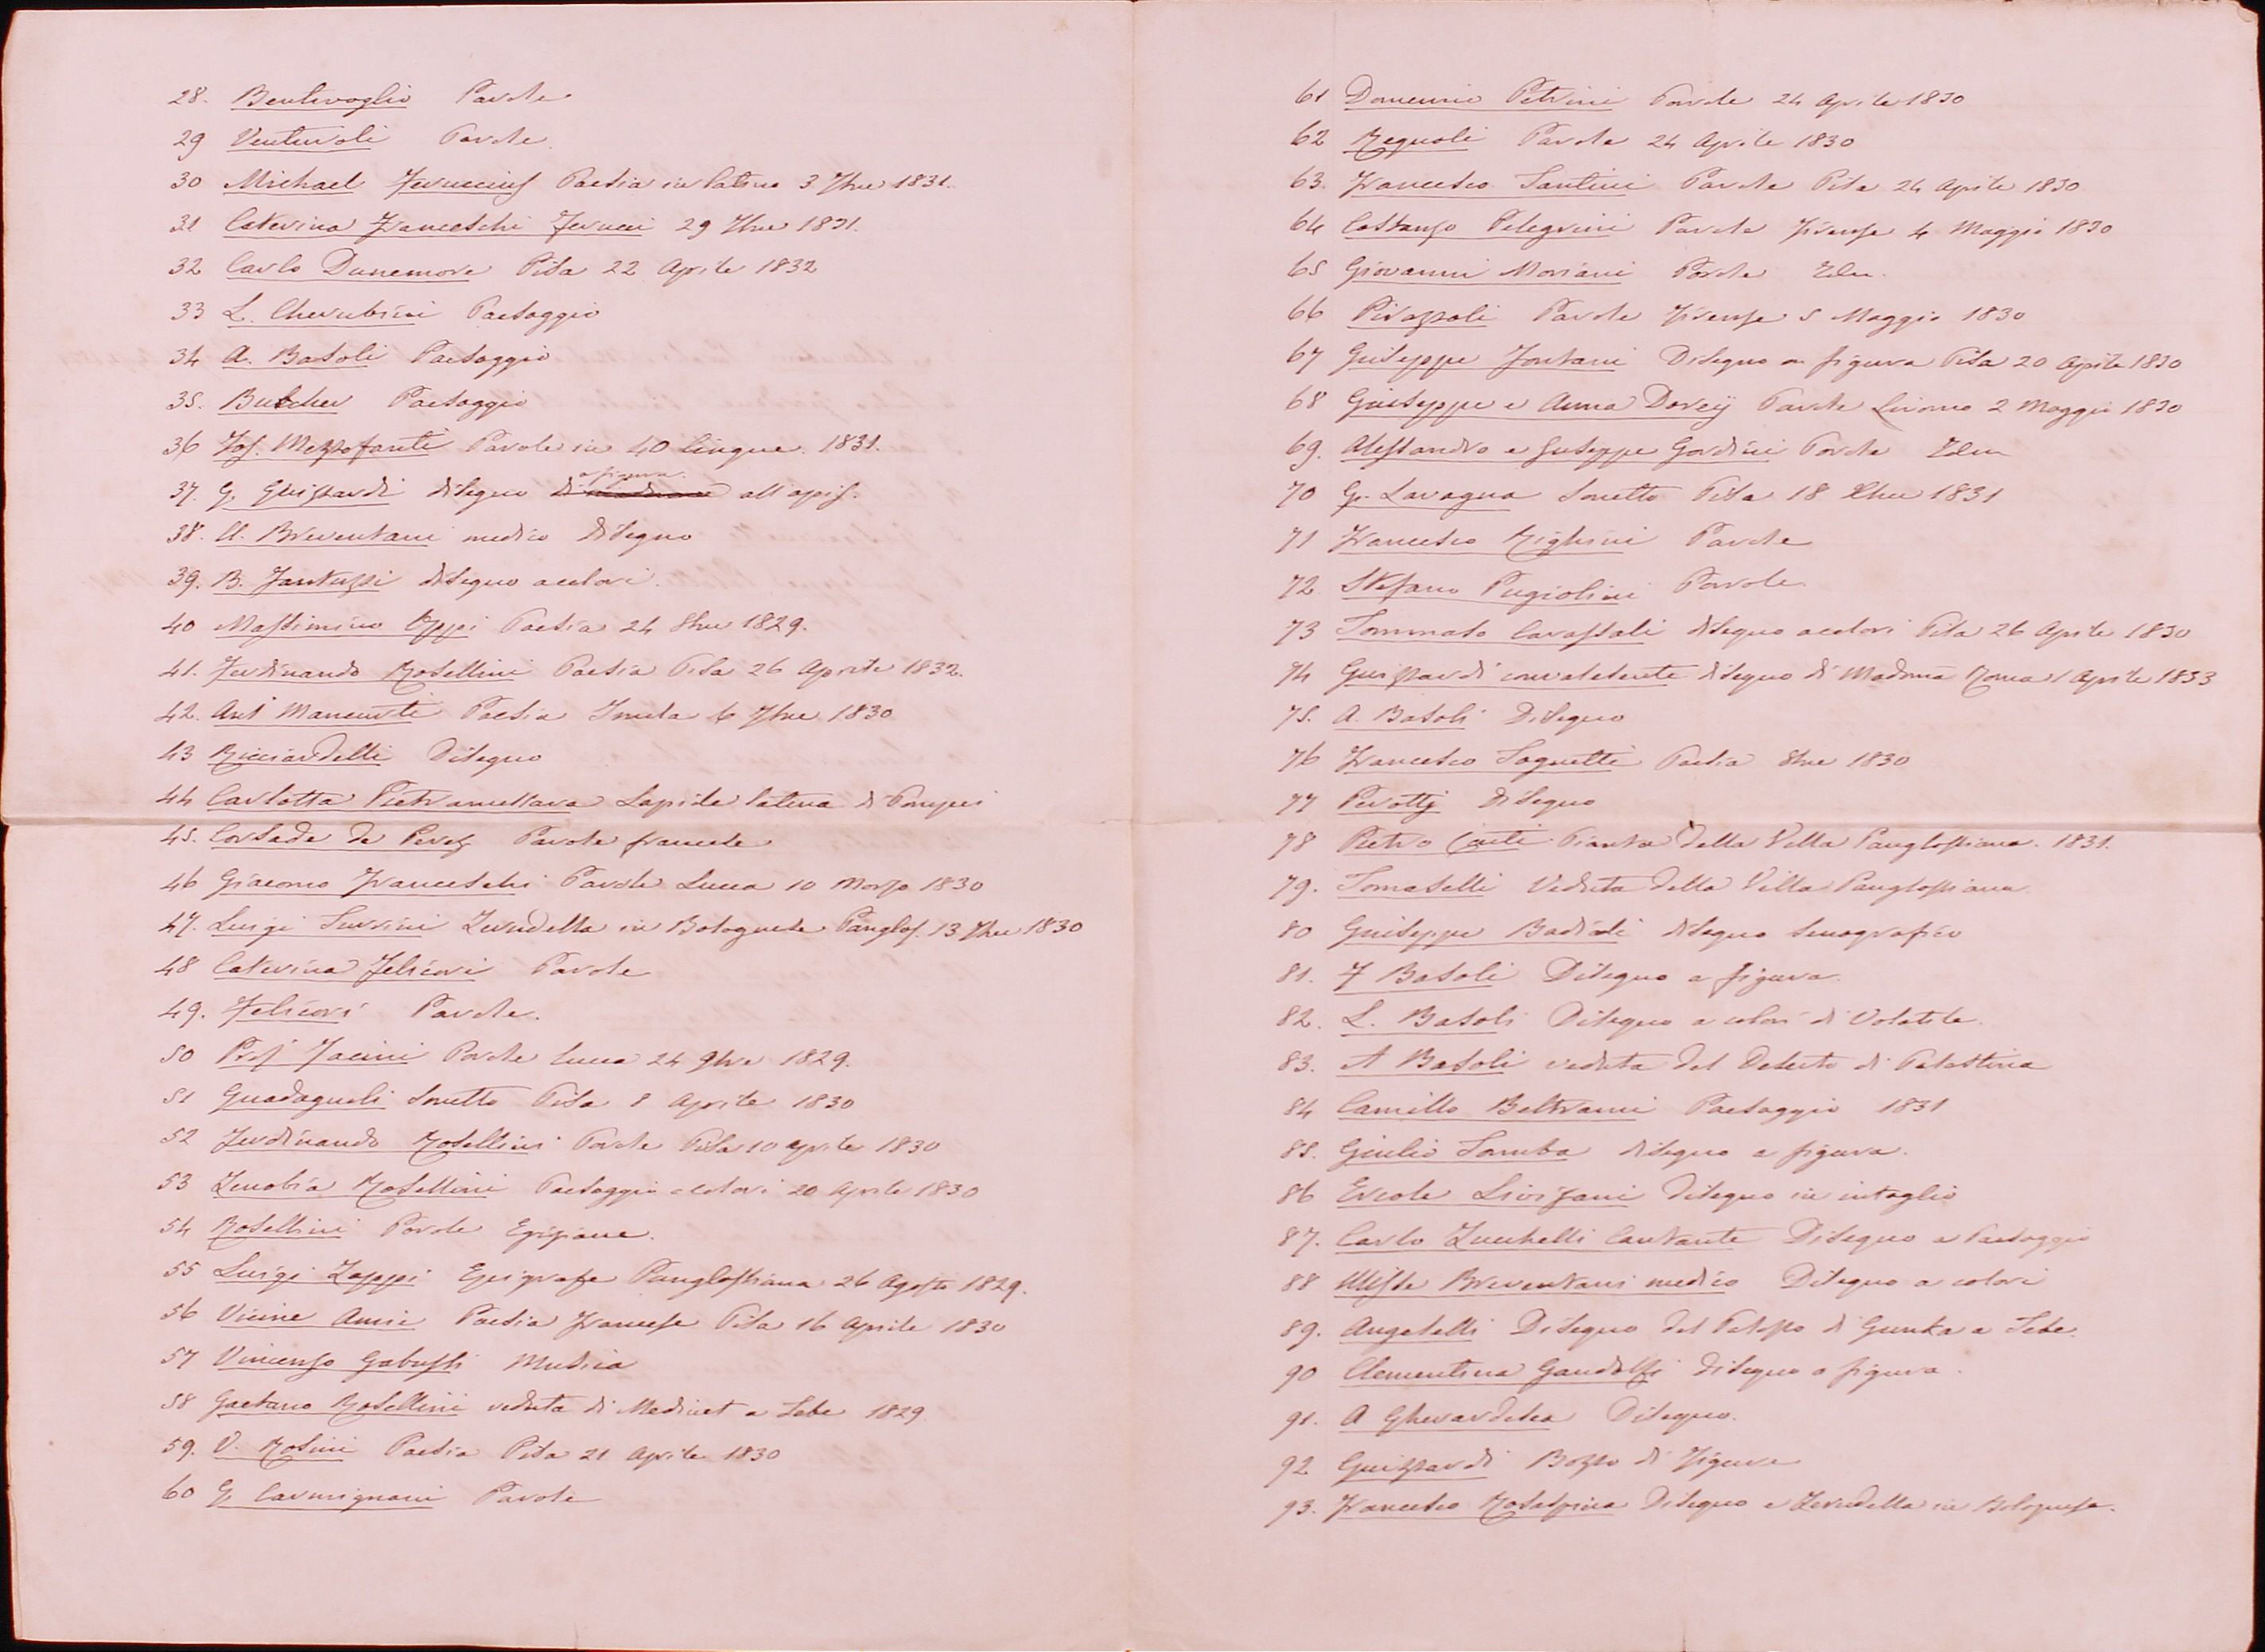 28. Bentivoglio Parole
29 Venturoli Parole
30 Michael Ferruccius Poesia in latino 3 7bre 1831.
31 Caterina Franceschi Ferrucci 29 7bre 1831.
32 Carlo Dunemore Pisa 22 Aprile 1832
33 L. Cherubini Paesaggio
34 A. Basoli Paesaggio
35. Butcher Paesaggio
36 Jos. Mezzofanti Parole in 40 lingue. 1831.
37. G. Guizzardi disegno a figura all'apis.
38. U. Breventani medico disegno
39. B. Fantuzzi disegno acolori.
40 Massimino Eppi Poesia 24 8bre 1829.
41. Ferdinando Rosellini Poesia Pisa 26 Aprile 1832.
42. Ant Mancurti Poesia Imola 6 7bre 1830
43 Ricciardelli Disegno
44 Carlotta Pietramellara Lapide latina di Pompei
45. Corsade de Perez Parole francese
46 Giacomo Franceschi Parole Lucca 10 Marzo 1830
47. Luigi Surrini Zirudella in Bolognese Panglos. 13 7bre 1830
48 Caterina Felicori Parole
49. Felicori Parole.
50 Prof Pacini Parole Lucca 24 9bre 1829.
51 Guadagnoli Sonetto Pisa 8 Aprile 1830
52 Ferdinando Rosellini Parole Pisa 10 Aprile 1830
53 Zenobia Rosellini Paesaggio a colori 20 Aprile 1830
54 Rosellini Parole Egiziane.
55 Luigi Zappi Epigrafe Panglossiana 26 Agosto 1829.
56 Vicine Amie Poesia Francese Pisa 16 Aprile 1830
57 Vincenzo Gabussi Musica
58 Gaetano Rosellini veduta di Medinet a Tebe 1829
59. V. Rosini Poesia Pisa 21 Aprile 1830
60 G. Carmignani Parole
61 Domenico Petrini Parole 24 Aprile 1830
62 Regnoli Parole 24 Aprile 1830
63. Francesco Santini Parole Pisa 24 Aprile 1830
64 Costanzo Pelegrini Parole Firenze 4 Maggio 1830
65 Giovanni Moriani Parole Idem.
66 Pirazzoli Parole Firenze 5 Maggio 1830
67 Guiseppe Fontani Disegno a figura Pisa 20 Aprile 1830
68 Guiseppe e Anna Dovej Parole Livorno 2 Maggio 1830
69. Alessandro e Guseppe Gordini Parole Idem
70 G. Lavagna Sonetto Pisa 18 Xbre 1831
71 Francesco Righini Parole
72. Stefano Pugiolini Parole.
73 Tommaso Cavassali disegno acolori Pisa 26 Aprile 1830
74 Guizzardi convalescente disegno di Madona Roma 1 Aprile 1833
75. A. Basoli Disegno
76 Francesco Tognetti Poesia 8bre 1830
77 Perottj disegno
78 Pietro Conti Pianta della Villa Panglossiana. 1831.
79. Tomaselli Veduta della Villa Panglossiana.
80 Guiseppe Badiali disegno senografico
81. F Basoli Disegno a figura.
82. L. Basoli Disegno a colori di Volatile.
83. A Basoli veduta del Deserto di Palestina
84 Camillo Beltrami Paesaggio 1831
85. Giulio Tomba disegno a figura.
86 Ercole Livizzani disegno in intaglio
87. Carlo Zucchelli Cantante Disegno a Paesaggio
88 Ulisse Breventani medico Disegno a colori
89. Angelelli Disegno del Palazzo di Gurka a Tebe.
90 Clementina Gandolfi disegno a figura.
91. A Gherardesca Disegno.
92 Guizzardi Bozzo di Figure
93. Francesco Rosaspina Disegno e Zirudella in Bolognese.